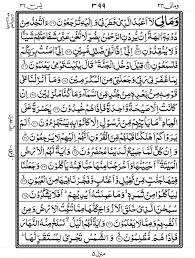 ومالی ۲۳ ۳۹۹ یٰسٓ ۳۶
وَمَالِيَ لَآ اَعْبُدُ الَّذِيْ فَطَرَنِيْ وَاِلَيْهِ تُرْجَعُوْنَ ءَاَتَّخِذُ مِنْ
دُوْنِهٖٓ اٰلِهَةً اِنْ يُّرِدْنِ الرَّحْمٰنُ بِضُرٍّ لَّا تُغْنِ عَنِّيْ شَفَاعَتُهُمْ شَيْـًٔا
وَّلَا يُنْقِذُوْنِ اِنِّيْٓ اِذًا لَّفِيْ ضَلٰلٍ مُّبِيْنٍ اِنِّيْٓ اٰمَنْتُ بِرَبِّكُمْ
فَاسْمَعُوْنِ قِيْلَ ادْخُلِ الْجَنَّةَ قَالَ يٰلَيْتَ قَوْمِيْ يَعْلَمُوْنَ
بِمَا غَفَرَ لِيْ رَبِّيْ وَجَعَلَنِيْ مِنَ الْمُكْرَمِيْنَ وَمَآ اَنْزَلْنَا عَلٰى
قَوْمِهٖ مِنْۢ بَعْدِهٖ مِنْ جُنْدٍ مِّنَ السَّمَآءِ وَمَا كُنَّا مُنْزِلِيْنَ اِنْ
كَانَتْ اِلَّا صَيْحَةً وَّاحِدَةً فَاِذَا هُمْ خٰمِدُوْنَ يٰحَسْرَةً عَلَى
الْعِبَادِ مَا يَاْتِيْهِمْ مِّنْ رَّسُوْلٍ اِلَّا كَانُوْا بِهٖ يَسْتَهْزِءُوْنَ اَلَمْ
يَرَوْا كَمْ اَهْلَكْنَا قَبْلَهُمْ مِّنَ الْقُرُوْنِ اَنَّهُمْ اِلَيْهِمْ لَا يَرْجِعُوْنَ
وَاِنْ كُلٌّ لَّمَّا جَمِيْعٌ لَّدَيْنَا مُحْضَرُوْنَ وَاٰيَةٌ لَّهُمُ الْاَرْضُ
الْمَيْتَةُ اَحْيَيْنٰهَا وَاَخْرَجْنَا مِنْهَا حَبًّا فَمِنْهُ يَاْكُلُوْنَ وَجَعَلْنَا
فِيْهَا جَنّٰتٍ مِّنْ نَّخِيْلٍ وَّاَعْنَابٍ وَّفَجَّرْنَا فِيْهَا مِنَ الْعُيُوْنِ
لِيَاْكُلُوْا مِنْ ثَمَرِهٖ وَمَا عَمِلَتْهُ اَيْدِيْهِمْ اَفَلَا يَشْكُرُوْنَ
سُبْحٰنَ الَّذِيْ خَلَقَ الْاَزْوَاجَ كُلَّهَا مِمَّا تُنْۢبِتُ الْاَرْضُ وَمِنْ
اَنْفُسِهِمْ وَمِمَّا لَا يَعْلَمُوْنَ وَاٰيَةٌ لَّهُمُ الَّيْلُ نَسْلَخُ مِنْهُ النَّهَارَ
فَاِذَا هُمْ مُّظْلِمُوْنَ وَالشَّمْسُ تَجْرِيْ لِمُسْتَقَرٍّ لَّهَا
منزل ۵